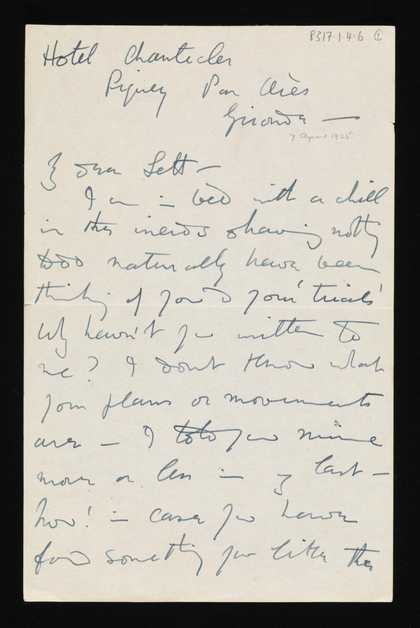 P317.1.4.6
Hotel Chantecler
Piquey Par Arès
Gironde —
7 August 1925
My dear Sett —
I am in bed with a chill
in the innards & having nothing
to do naturally have been
thinking of you & your 'trials'
Why haven't you written to
me? I don't know what
your plans or movements
are — I told you mine
more or less in my last —
now! in case you have
found something you like this